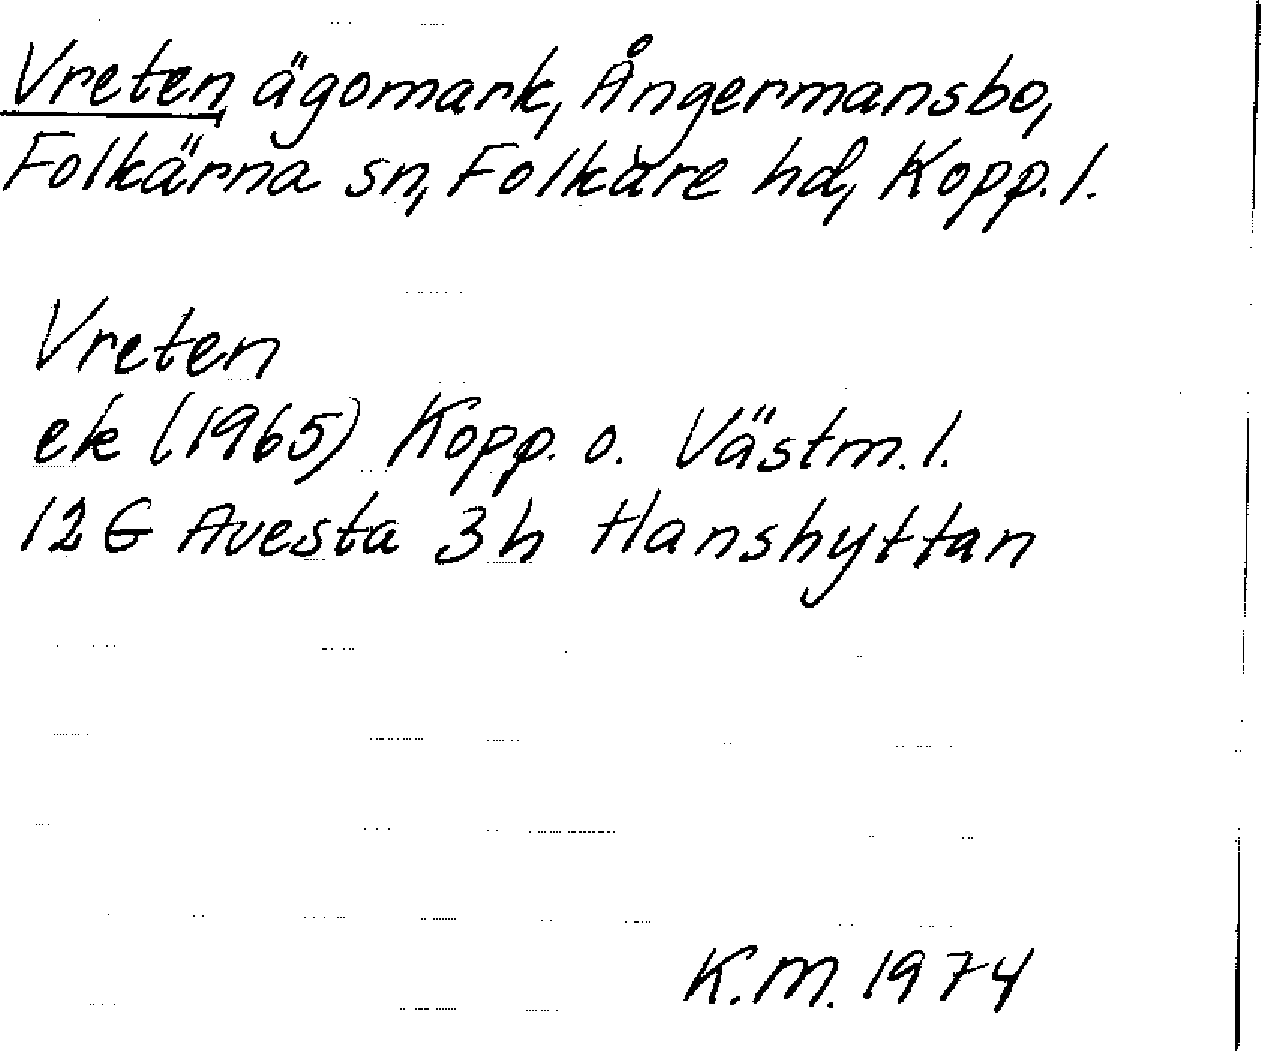 Vreten, ägomark, Ångermansbo,
Folkärna sn, Folkare hd, Kopp. l.
Vreten
ek (1965) Kopp. o. Västm. l.
12 G Avesta 3 h Hanshyttan
K.M. 1974